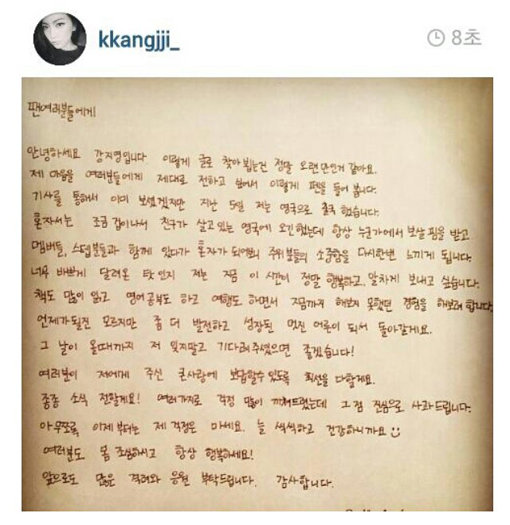 kkangjji_
8초
팬여러분들에게
안녕하세요 강지영입니다 이렇게 글로 찾아뵙는건 정말 오랜만인거 같아요.
제 마음을 여러분들에게 제대로 전하고 싶어서 이렇게 펜을 들어 봅니다.
기사를 통해서 이미 보셨겠지만 지난 5일 저는 영국으로 출국 했습니다.
혼자서는 조금 겁이나서 친구가 살고 있는 영국에 오긴했는데 항상 누군가에게 보살핌을 받고
멤버들, 스텝분들과 함께 있다가 혼자가 되어보니 주위분들의 소중함을 다시한번 느끼게 됩니다.
너무 바쁘게 달려온 탓인지 저는 지금 이 시간이 정말 행복하고, 알차게 보내고 싶습니다.
책도 많이 읽고 영어공부도 하고 여행도 하면서 지금까지 해보지 못했던 경험을 해보려 합니다.
언제가될진 모르지만 좀 더 발전하고 성장된 멋진 어른이 되서 돌아갈게요.
그 날이 올때까지 저 잊지말고 기다려주셨으면 좋겠습니다!
여러분이 저에게 주신 큰사랑에 보답할수있도록 최선을 다할게요.
종종 소식 전할게요! 여러가지로 걱정 많이 끼쳐드렸는데 그 점 진심으로 사과드립니다.
아무쪼록 이제부터는 제 걱정은 마세요. 늘 씩씩하고 건강하니까요
여러분도 몸 조심하시고 항상 행복하세요!
앞으로도 많은 격려와 응원 부탁드립니다. 감사합니다.